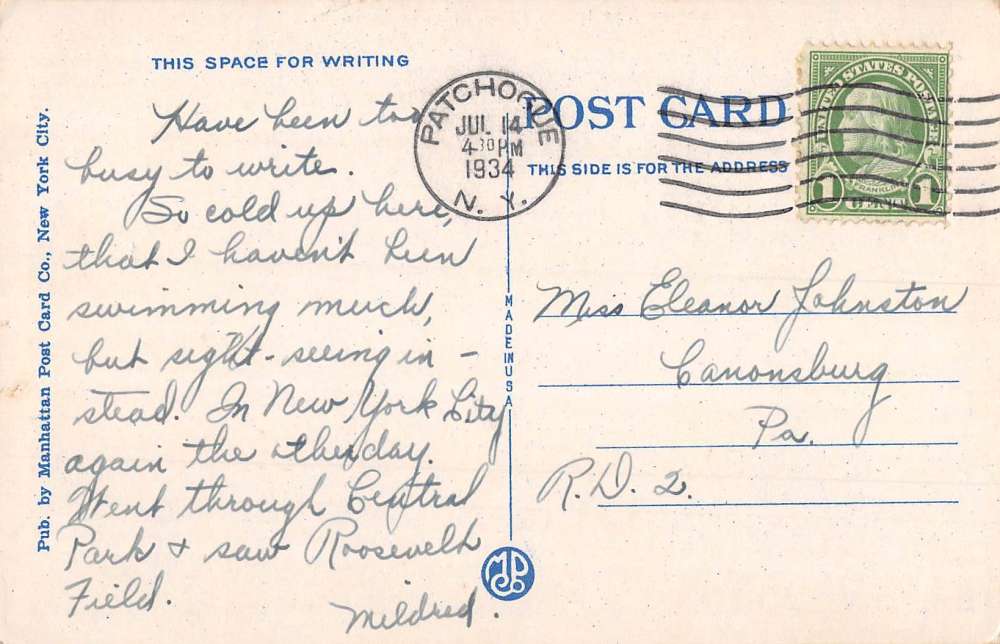 THIS SPACE FOR WRITING
Have been too
busy to write.
So cold up here,
that I haven't been
swimming much,
but sight-seeing in-
stead. In New York City
again the otherday.
Went through Central
Park & saw Roosevelt
Field.
Mildred.
Pub. by Manhattan Post Card Co., New York City.
PATCHOGUE
JUL 14
4 30 PM
1934
N. Y.
POST CARD
THIS SIDE IS FOR THE ADDRESS
UNITED STATES POSTAGE
FRANKLIN
1 CENT 1
MADE IN USA
Miss Eleanor Johnston
Canonsburg
Pa.
R.D. 2.